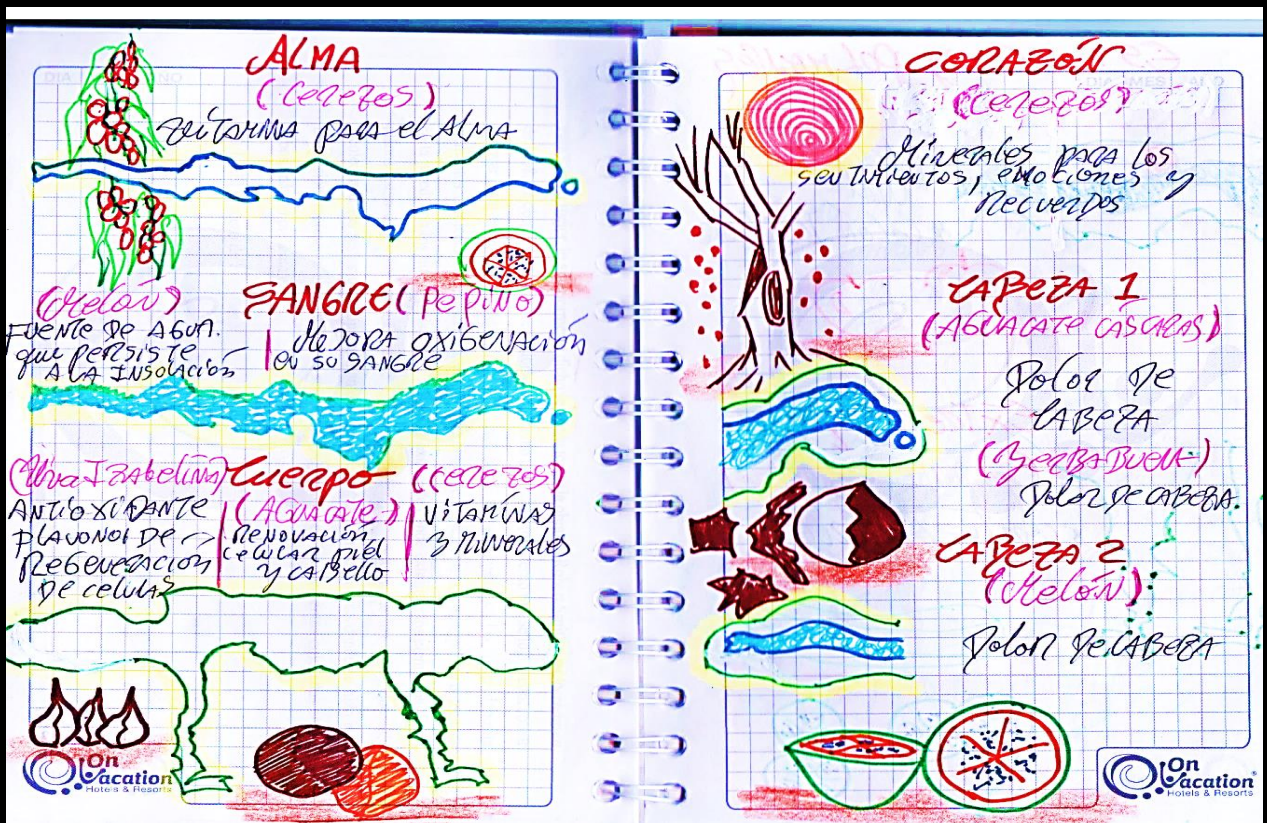 ALMA
(Cerezos)
para el Alma
(Melón)
SANGRE (PEPINO)
FUENTE DE AGUA.
que PERSISTE
A LA INSOLACIÓN
MEJORA OXIGENACIÓN
EN SU SANGRE
(Uva Izabelina)
Cuerpo
(Cerezos)
ANTIOXIDANTE
PLAVONOI DE
REGENERACION
DE celulas
(AGUACATE)
RENOVACIÓN
celular piel
y CABELLO
VITAMINAS
3 MINERALES
On
Vacation
Hotels & Resorts
CORAZÓN
(Cerezos)
Minerales para los
sentimientos, emociones y
Recuerdos
CABEZA 1
(AGUACATE CÁSCARAS)
Dolor De
CABEZA
(YERBABUENA)
Dolor De CABEZA.
CABEZA 2
(Melón)
Dolor De CABEZA
On
Vacation
Hotels & Resorts